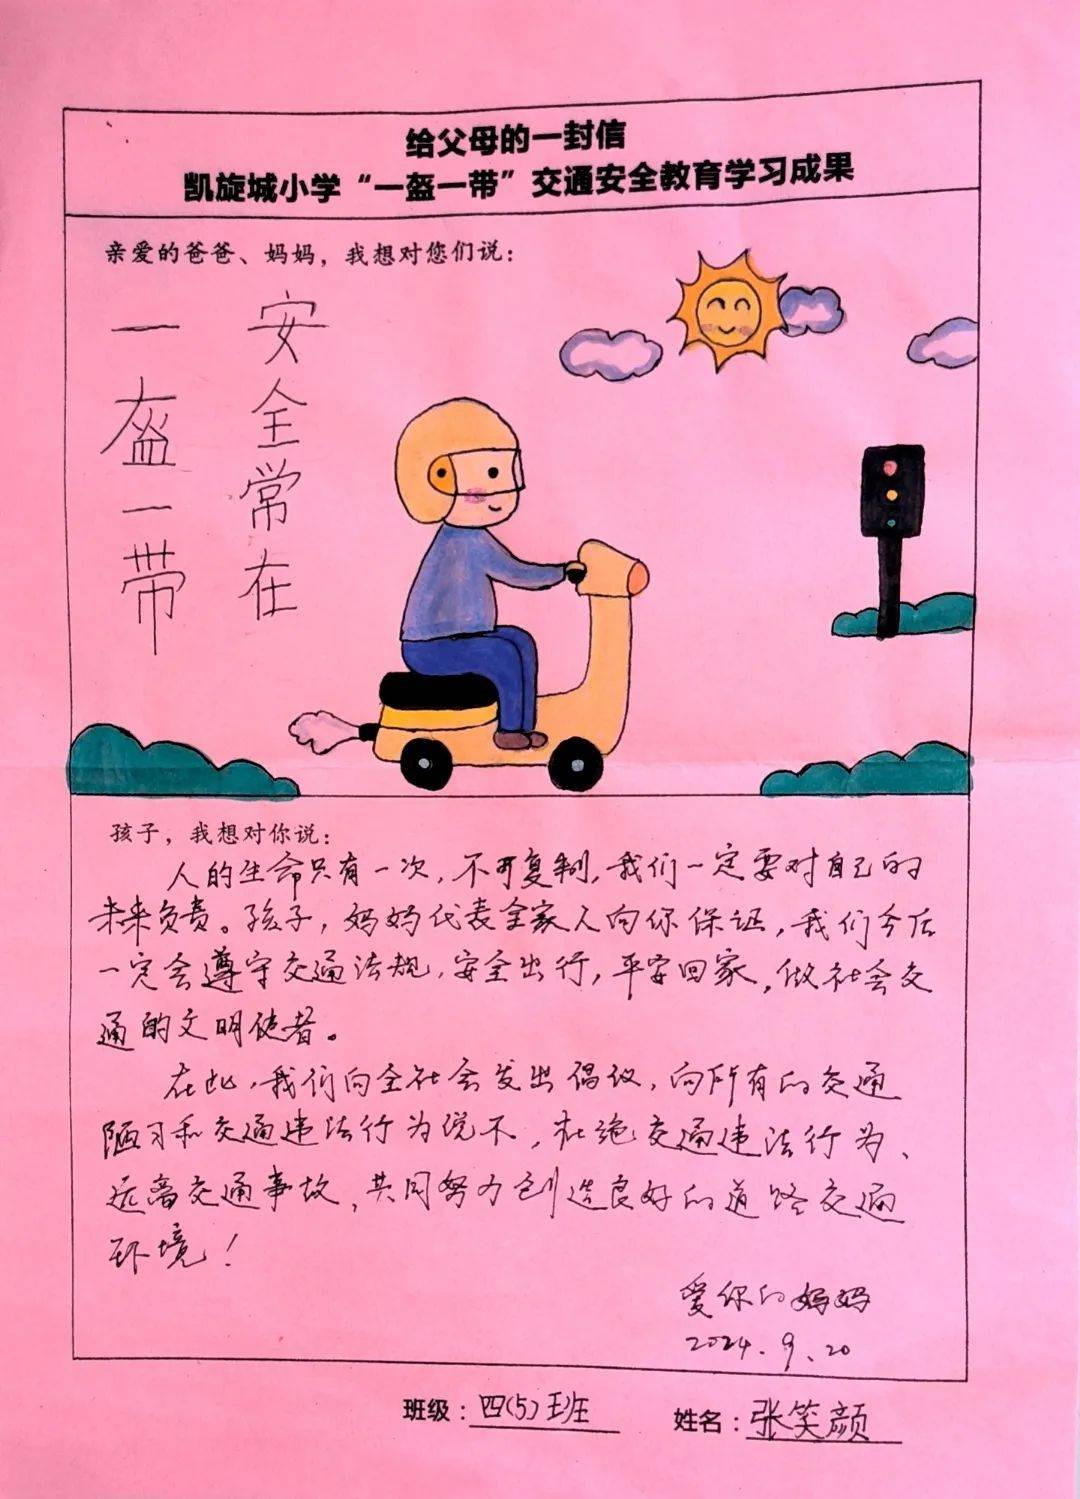 给父母的一封信
凯旋城小学“一盔一带”交通安全教育学习成果
亲爱的爸爸、妈妈，我想对您们说：
一盔一带
安全常在
孩子，我想对你说：
人的生命只有一次，不可复制，我们一定要对自己的
未来负责。孩子，妈妈代表全家人向你保证，我们今后
一定会遵守交通法规，安全出行，平安回家，做社会交
通的文明使者。
在此，我们向全社会发出倡议，向所有的交通
陋习和交通违法行为说不，杜绝交通违法行为、
远离交通事故，共同努力创造良好的道路交通
环境！
爱你的妈妈
2024.9.20
班级：四(5)班
姓名：张笑颜